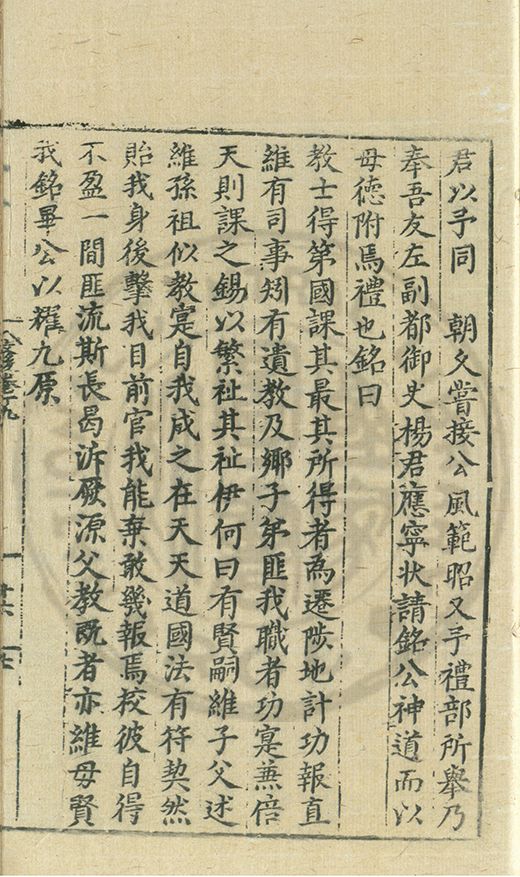 君以予同　朝久嘗接公風範昭又予禮部所舉乃
奉吾友左副都御史楊君應寧状請銘公神道而以
母德附焉禮也銘曰
教士得第國課其最其所得者為遷陟地計功報直
維有司事矧有遺教及鄉子弟匪我職者功寔兼倍
天則課之錫以繁祉其祉伊何曰有賢嗣維子父述
維孫祖似教寔自我成之在天天道國法有符契然
貽我身後擊我目前官我能棄敢幾報焉校彼自得
不盈一間匪流斯長曷泝厥源父教既者亦維母賢
我銘畢公以耀九原